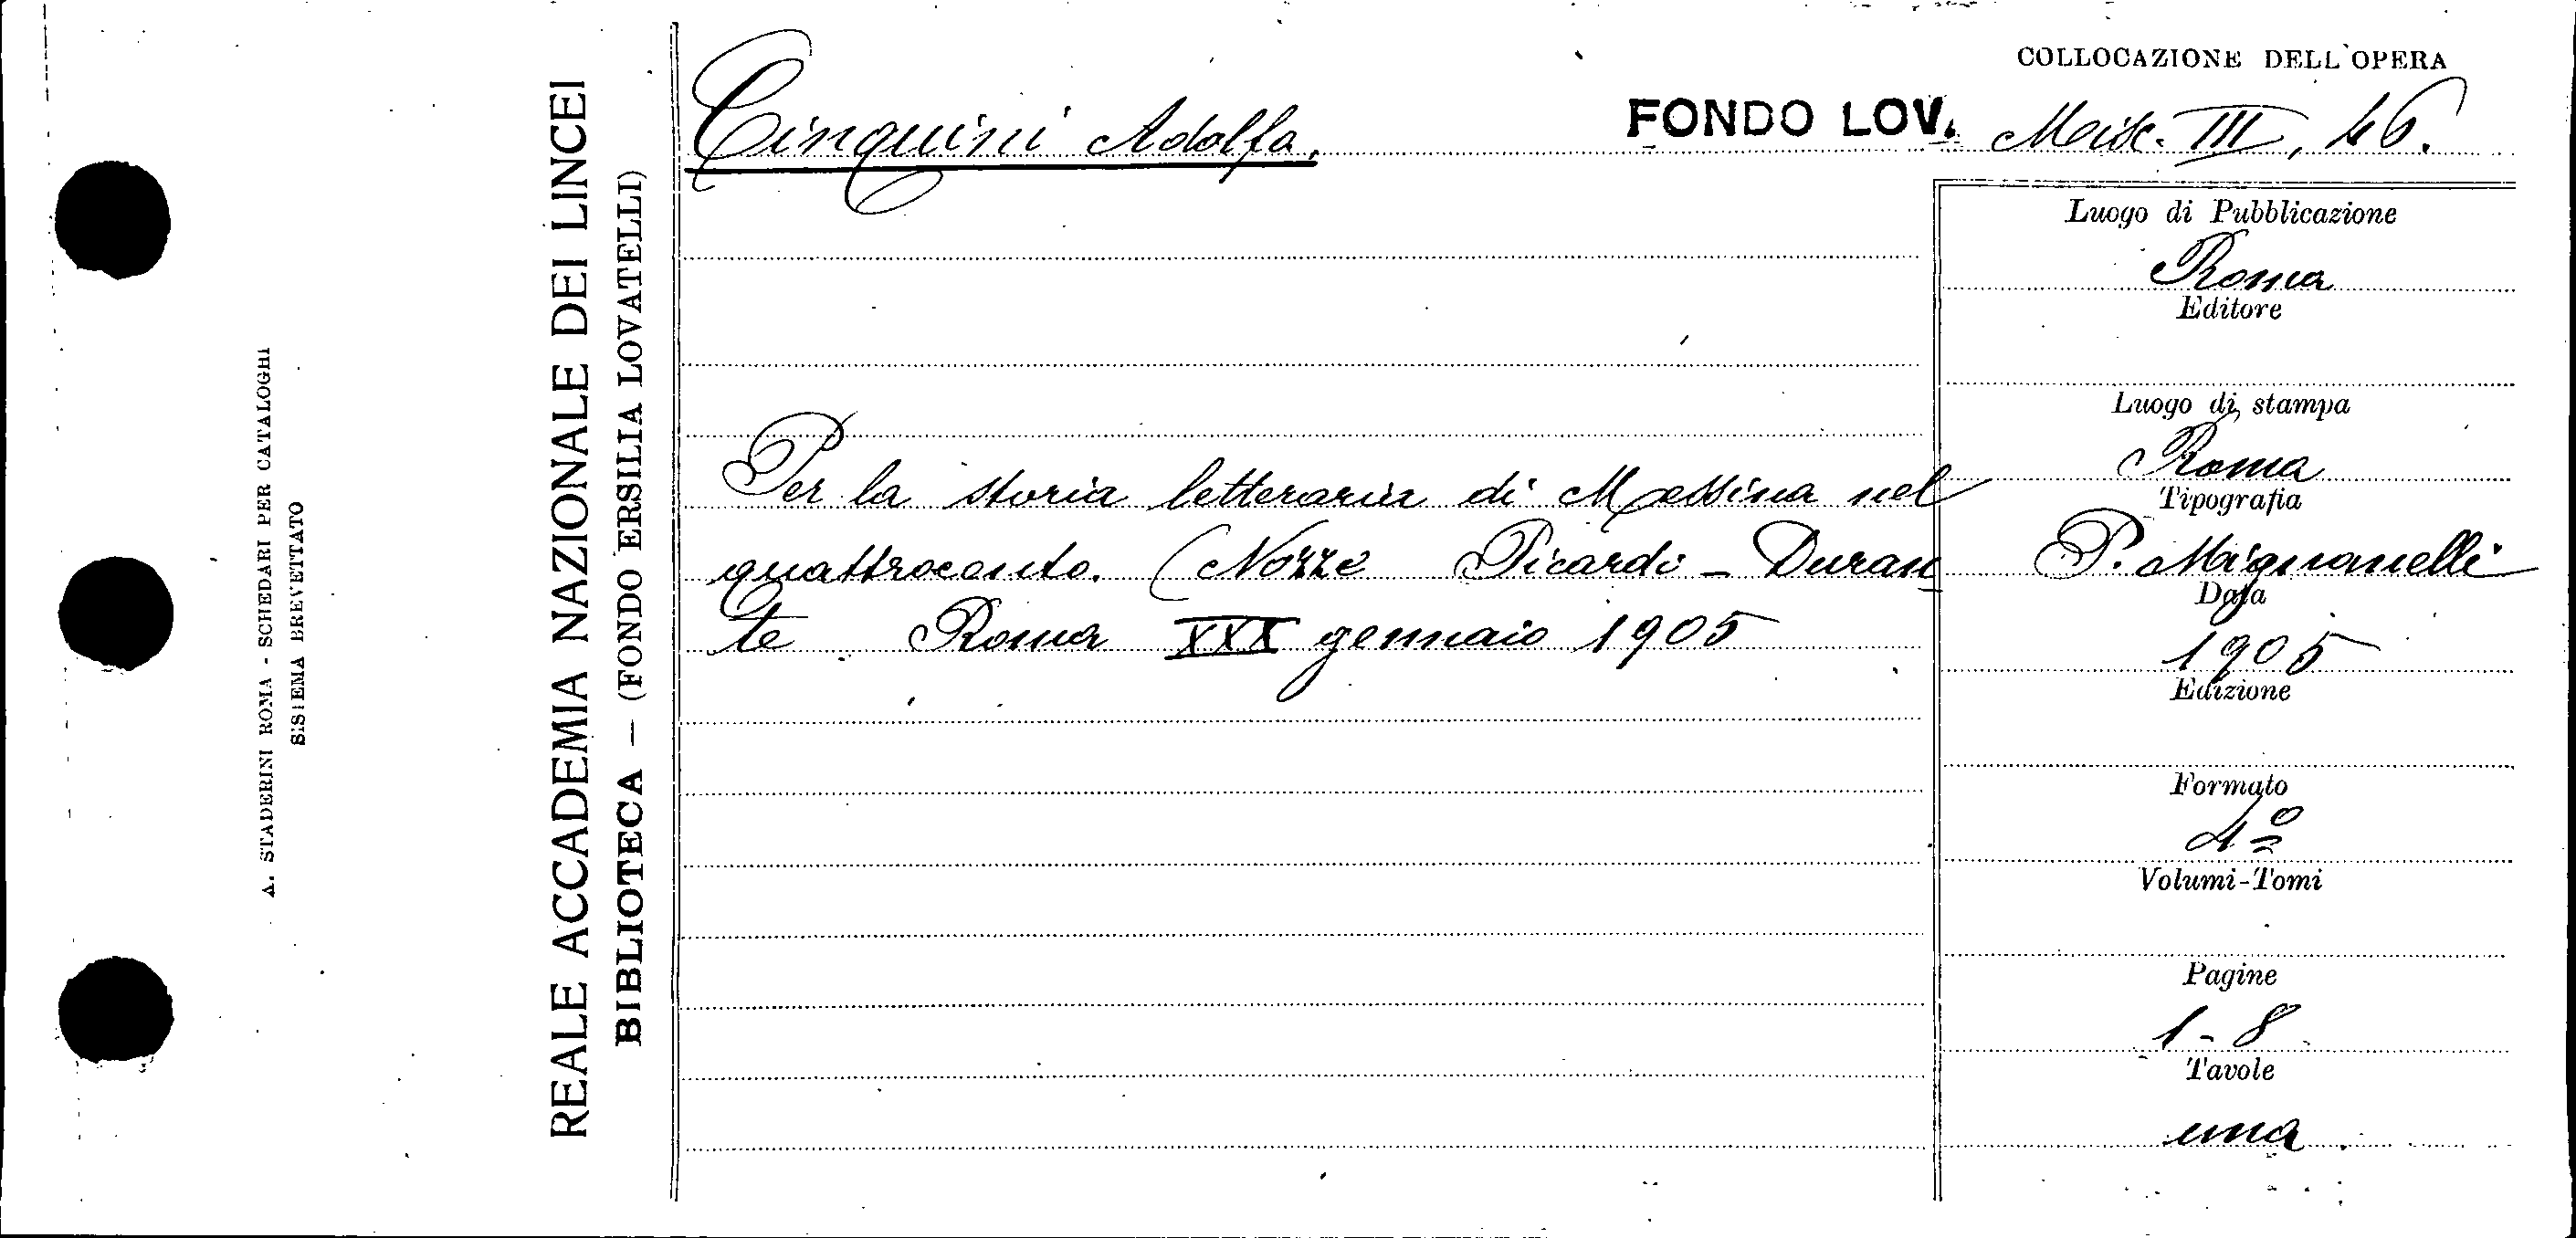 A. STADERINI ROMA - SCHEDARI PER CATALOGHI
SISTEMA BREVETTATO
REALE ACCADEMIA NAZIONALE DEI LINCEI
BIBLIOTECA — (FONDO ERSILIA LOVATELLI)
COLLOCAZIONE DELL'OPERA
Cinquini Adolfo. FONDO LOV. Misc. III, 46.
Per la storia letteraria di Messina nel
quattrocento. (Nozze Picardi - Duran
te Roma XXX gennaio 1905
Luogo di Pubblicazione
Roma
Editore
Luogo di stampa
Roma
Tipografia
P. Mignanelli
Data
1905
Edizione
Formato
4º
Volumi-Tomi
Pagine
1-8
Tavole
una